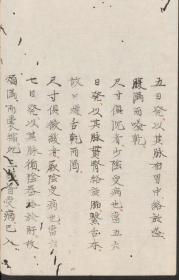 五日發以其脉布胃中絡於嗌
腹滿而嗌乾
尺寸俱沉者少陰受病也當五六
日發以其脉貫腎絡於肺繫舌本
故口燥舌乾而渴
尺寸俱微緩者厥陰受病也當六
七日發以其脉循陰器絡於肝故
煩滿而囊縮此三經皆受病已入